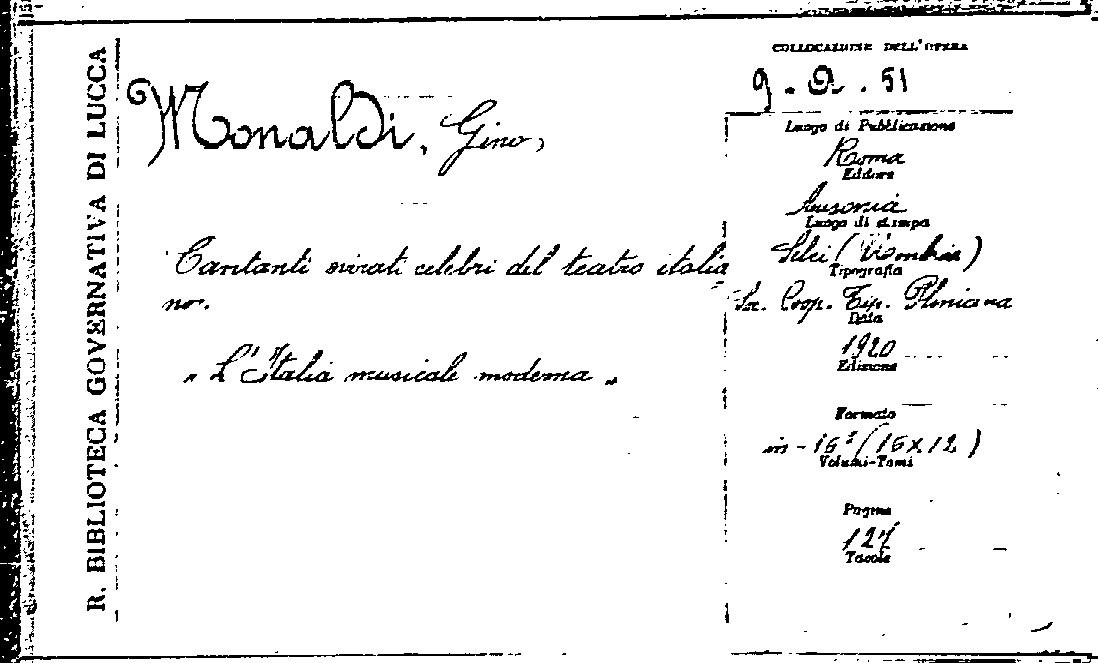 R. BIBLIOTECA GOVERNATIVA DI LUCCA
Monaldi, Gino,
Cantanti evirati celebri del teatro italia
no.
"L'Italia musicale moderna"
COLLOCAZIONE DELL'OPERA
9. Q. 51
Luogo di Pubblicazione
Roma
Editore
Ausonia
Luogo di stampa
Selci (Umbria)
Tipografia
Soc. Coop. Tip. Pliniana
Data
1920
Edizione
Formato
in-16° (16x12)
Volumi-Tomi
Pagine
127
Tavole